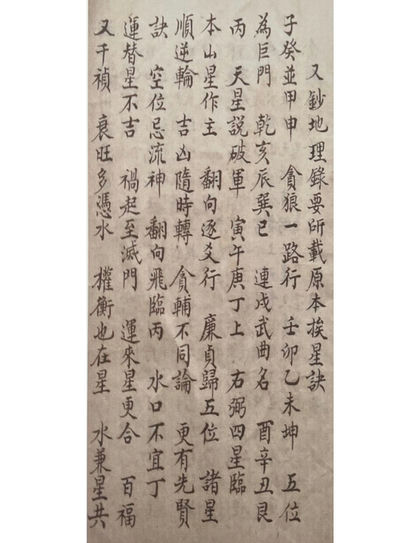 又鈔地理錄要所載原本挨星訣
子癸並甲申 貪狼一路行 壬卯乙未坤 五位
為巨門 乾亥辰巽巳 連戌武曲名 酉辛丑艮
丙 天星說破軍 寅午庚丁上 右弼四星臨
本山星作主 翻向逐爻行 廉貞歸五位 諸星
順逆輪 吉凶隨時轉 貪輔不同論 更有先賢
訣 空位忌流神 翻向飛臨丙 水口不宜丁
運替星不吉 禍起至滅門 運來星更合 百福
又千禎 衰旺多憑水 權衡也在星 水兼星共